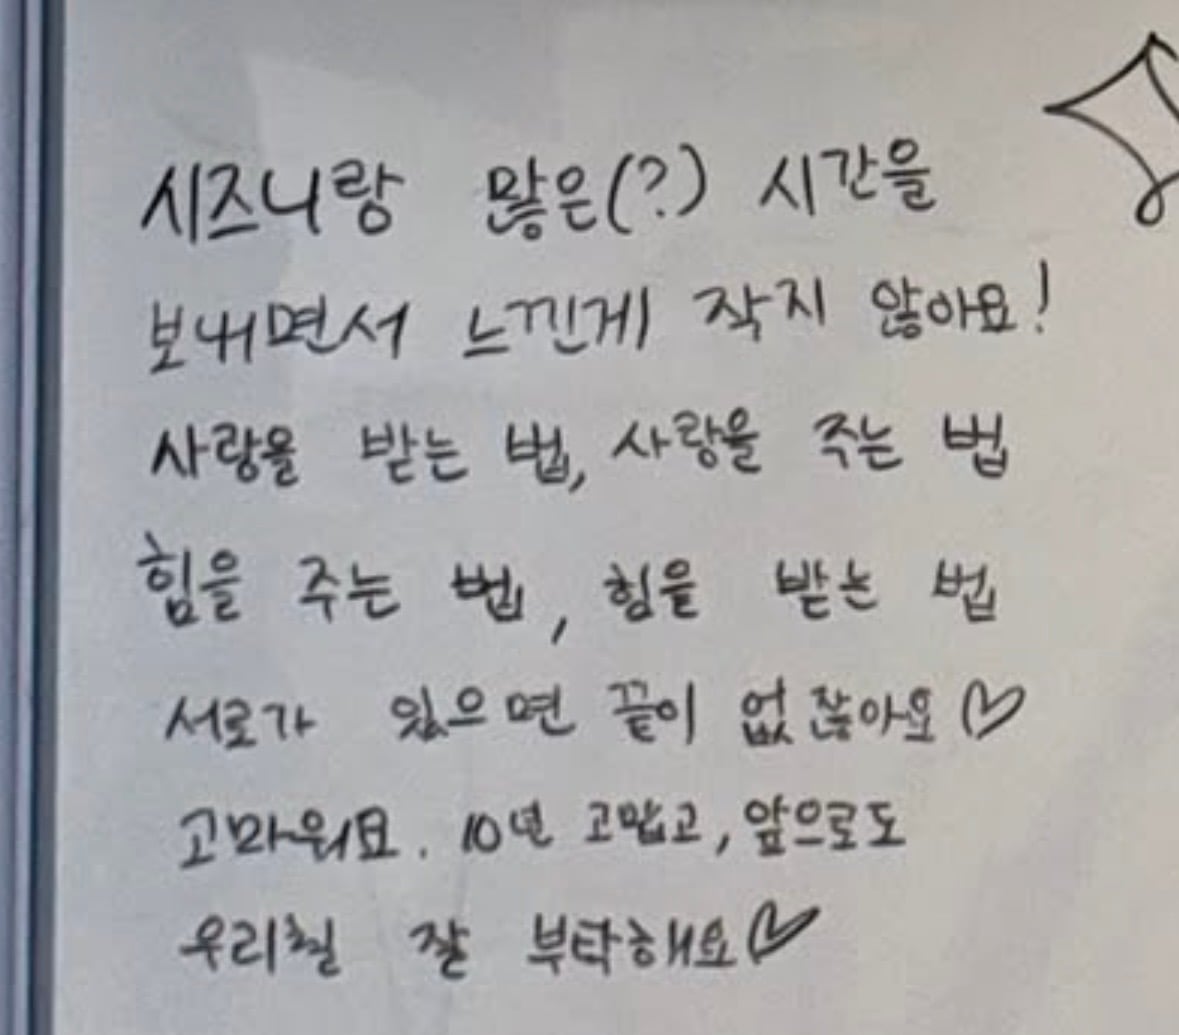 시즈니랑 많은(?) 시간을
보내면서 느낀게 작지 않아요!
사랑을 받는 법, 사랑을 주는 법
힘을 주는 법, 힘을 받는 법
서로가 있으면 끝이 없잖아요♡
고마워요. 10년 고맙고, 앞으로도
우리칠 잘 부탁해요♡